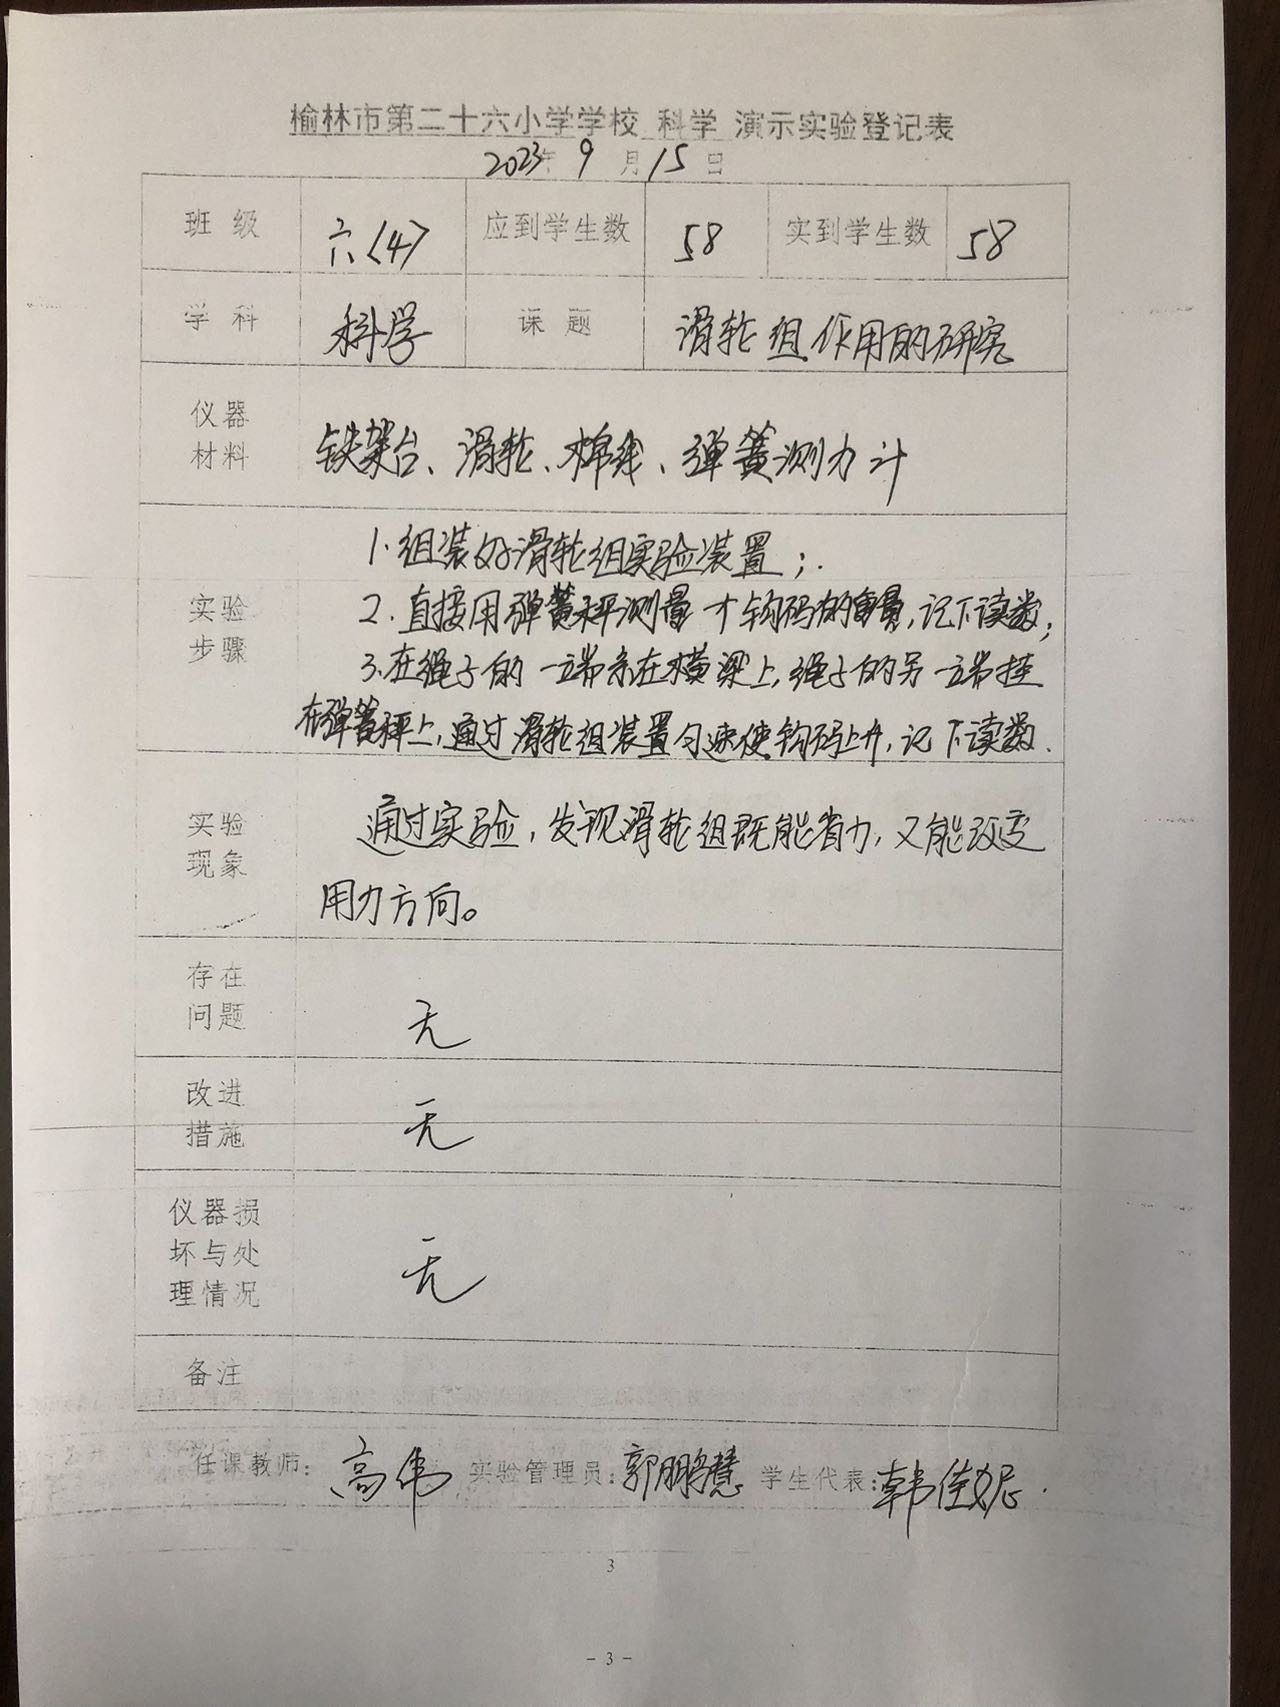 榆林市第二十六小学学校 科学 演示实验登记表
2023年 9 月 15 日
班 级 六〈4〉 应到学生数 58 实到学生数 58
学 科 科学 课 题 滑轮组作用的研究
仪器
材料
铁架台、滑轮、棉线、弹簧测力计
实验
步骤
1.组装好滑轮组实验装置;.
2.直接用弹簧秤测量 钩码的重量,记下读数;
3.在绳子的一端系在横梁上,绳子的另一端挂
在弹簧秤上,通过滑轮组装置匀速使钩码上升,记下读数.
实验
现象
通过实验,发现滑轮组既能省力,又能改变
用力方向。
存在
问题
无
改进
措施
无
仪器损
坏与处
理情况
无
备注
任课教师: 高伟 实验管理员: 郭鹏慧 学生代表: 韩佳妮.
3
- 3 -